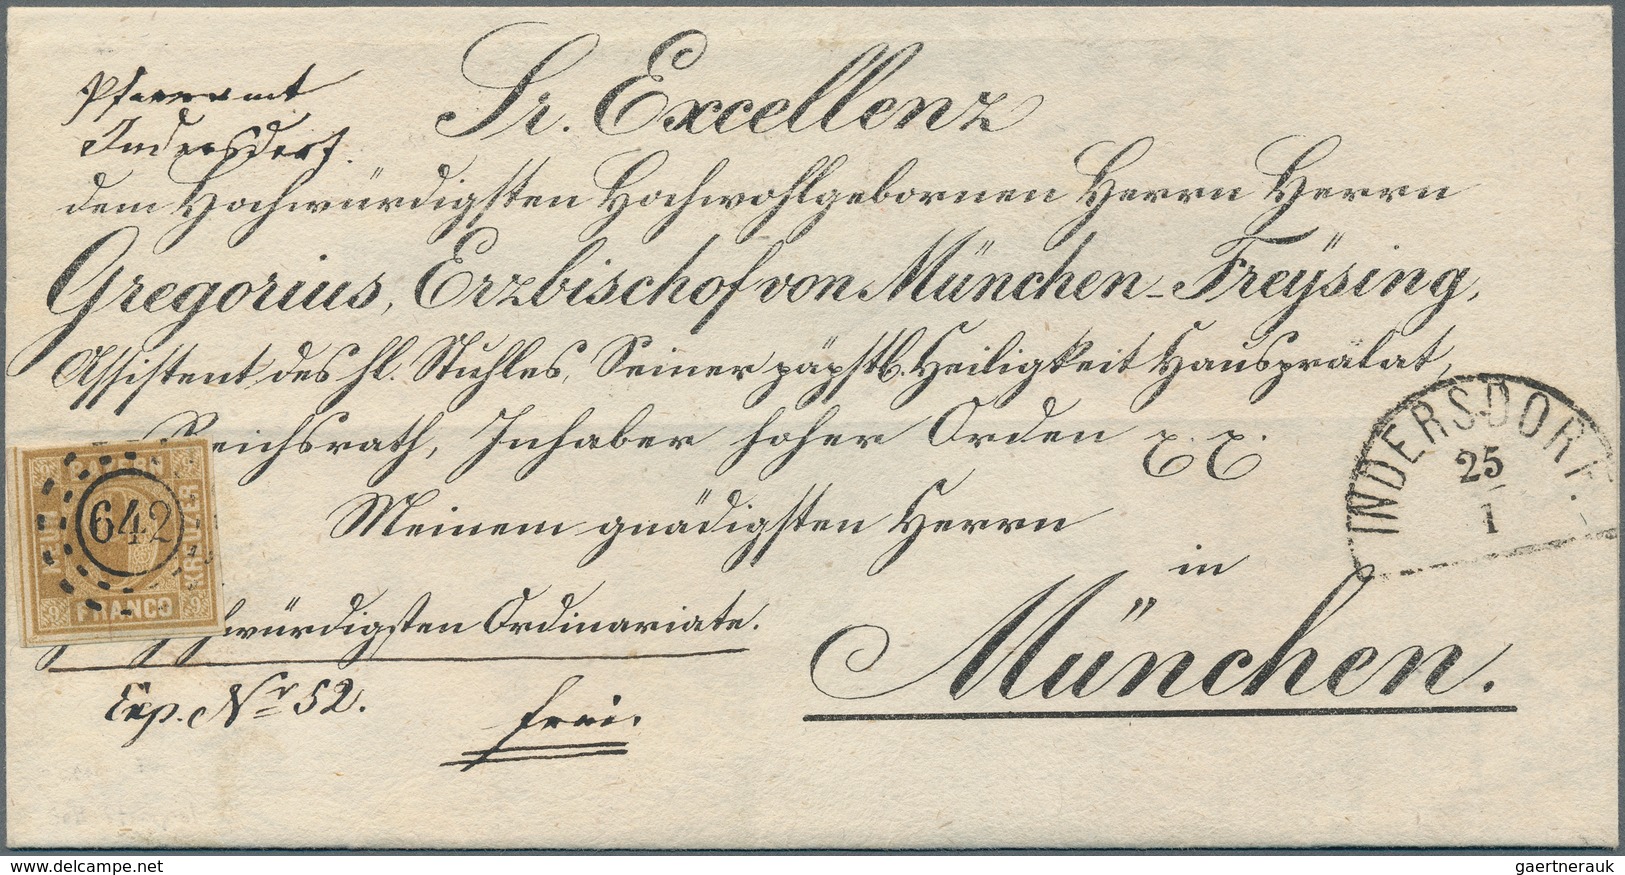 Pfarramt
Indersdorf.
Sr. Excellenz
dem Hochwürdigsten Hochwohlgebornen Herrn Herrn
Gregorius, Erzbischof von München-Freÿsing,
Assistent des hl. Stuhles, Seiner päpstl. Heiligkeit Hausprälat,
Reichsrath, Inhaber hoher Orden
Meinem gnädigsten Herrn
in
München.
würdigsten Ordinariate.
Exp. Nr 52.
frei.
642
KREUZER
FRANCO
9
9
INDERSDORF.
25
1
akpool.co.uk
gaertnerauk